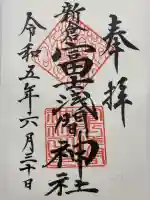 奉拝
新倉
富士浅間神社
令和五年六月三十日